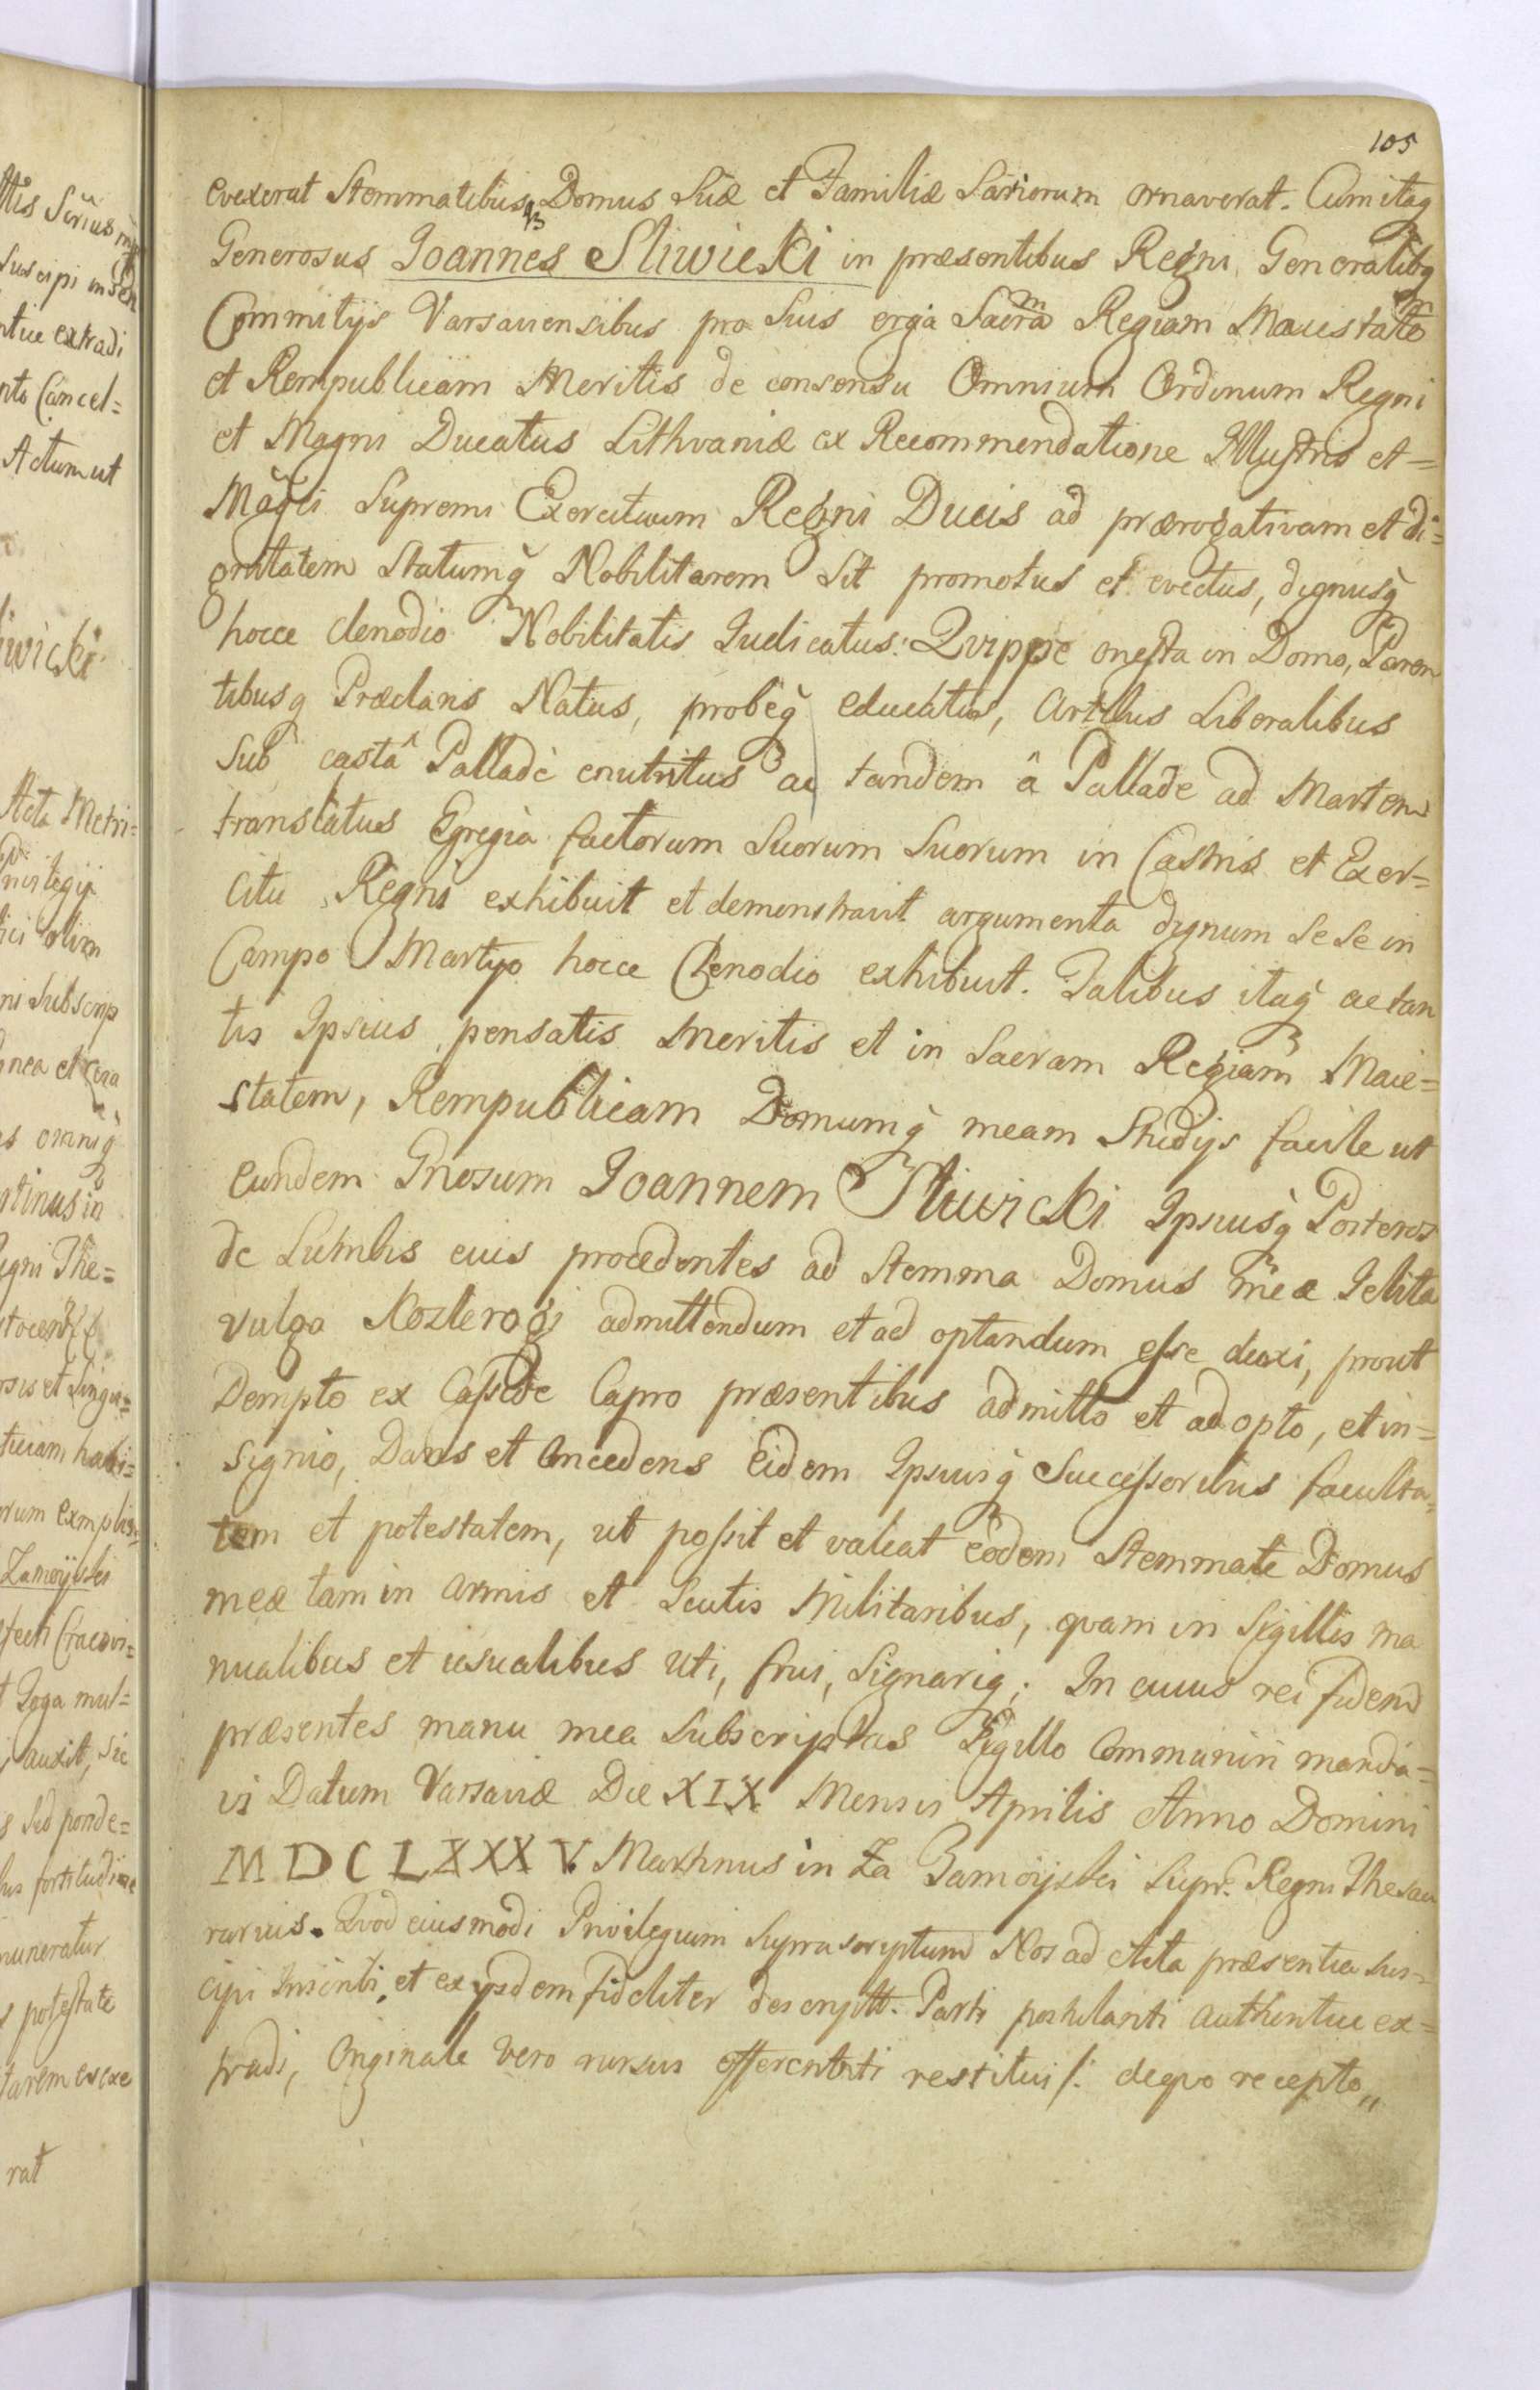 105
evexerat Stemmatibusq̃ Domus Suæ et Familiæ Sariorum ornaverat. Cum itaq
Generosus Joannes Sliwicki in præsentibus Regni Generalibq
Commitijs Varsauensibus pro Suis erga Sacra͠m Regiam Maiestate͠m
et Rempublicam Meritis de consensu Omnium Ordinum Regni
et Magni Ducatus Lithvaniæ ex Recommendatione Illustris et=
Mag̃ci Supremi Exercituum Regni Ducis ad prærogativam et di=
gnitatem Statumq̃ Nobilitarem Sit promotus et evectus, dignusq̃
hocce clenodio Nobilitatis Iudicatus: Qvippe onesta in Domo, Paren
tibusq Præclaris Natus, probeq̃ educatus, Artibus Liberalibus
Sub castâ Pallade enutritus ac tandem â Pallade ad Martem
translatus Egregia factorum Suorum Suorum in Castris et Exer=
citu Regni exhibuit et demonstravit argumenta dignum se se in
Campo Martyo hocce Clenodio exhibuit. Talibus itaq̃ ac tan
tis Ipsius pensatis Meritis et in Sacram Regiam Maie=
statem, Rempublicam Domumq̃ meam Studijs facile ut
Eundem Gnosum Joannem Sliwicki Ipsiusq̃ Posteros
de Lumbis eius procedentes ad Stemma Domus meæ Ielita
vulgo Kozlerogi admittendum et ad optandum esse duxi, prout
Dempto ex Casside Capro præsentibus admitto et adopto, et in=
signio, Dans et Concedens Eidem Ipsiusq̃ Successoribus faculta=
tem et potestatem, ut possit et valeat eodem Stemmate Domus
meæ tam in armis et Scutis Militaribus, qvam in Sigillis ma
nualibus et usualibus uti, frui, Signariq; In cuius rei fidem
præsentes manu mea Subscriptas Sigillo Communiri manda=
vi Datum Varsaviæ Die XIX Mensis Aprilis Anno Domini
MDCLXXXV. Martinus in Za Zamoyski Supr. Regni Thesau
rarius. Qvod eiusmodi Privilegium Suprascriptum Nos ad Acta præsentia sus=
cipi Inscribi, et ex ijsdem fideliter descriptt. Parti postulanti authentice ex=
tradi, Originale vero rursus offerenti restitui /: deqvo recepto„